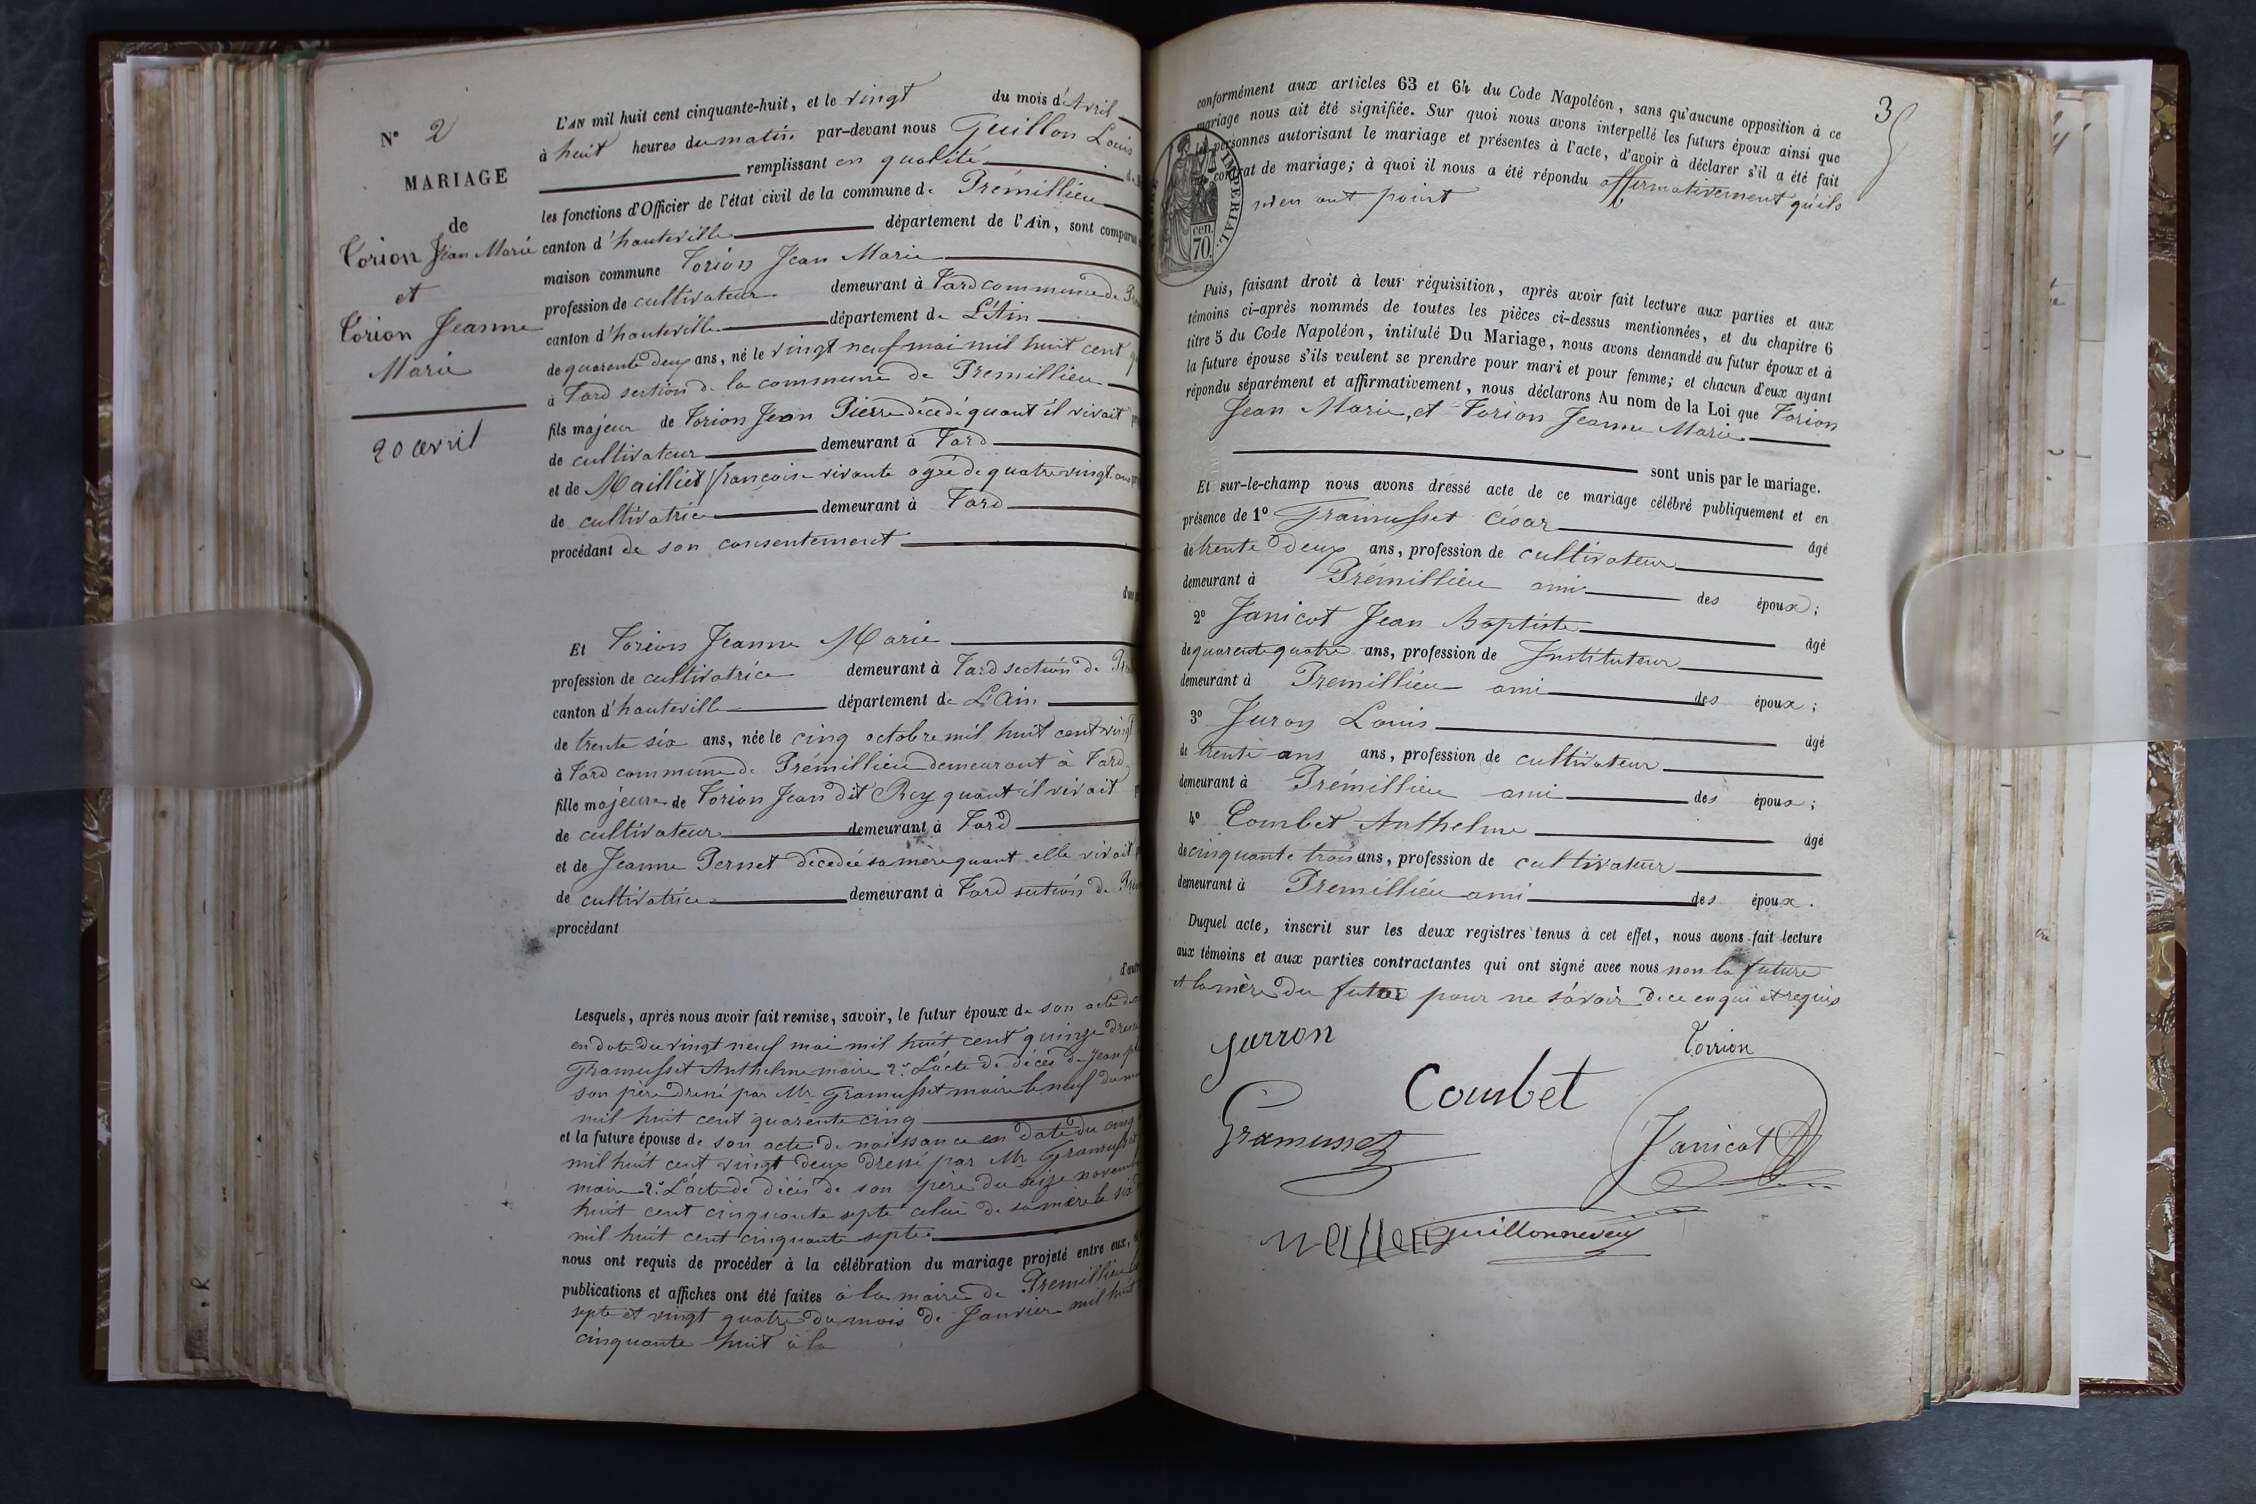 N° 2
MARIAGE
de
Torion Jean Marie
et
Torion Jeanne
Marie
20 avril
L'AN mil huit cent cinquante-huit, et le vingt du mois d'Avril
à huit heures du matin par-devant nous Guillon Louis
remplissant en qualité de
les fonctions d'Officier de l'état civil de la commune de Prémillieu
canton d'hauteville département de l'Ain, sont comparus
maison commune Torion Jean Marie
profession de cultivateur demeurant à Tard commune de
canton d'hauteville département de L'Ain
de quarente deux ans, né le vingt neuf mai mil huit cent
à Tard section de la commune de Premillieu
fils majeur de Torion Jean Pierre décédé quant il vivait
de cultivateur demeurant à Tard
et de Mailliet françoise vivante agée de quatre vingt ans
de cultivatrice demeurant à Tard
procédant de son consentement
Et Torion Jeanne Marie
profession de cultivatrice demeurant à Tard section de
canton d'hauteville département de L'Ain
de trente six ans, née le cinq octobre mil huit cent vingt
à Tard commune de Prémillieu demeurant à Tard
fille majeure de Torion Jean dit Rey quant il vivait
de cultivateur demeurant à Tard
et de Jeanne Pernet décédée sa mère quant elle vivait
de cultivatrice demeurant à Tard section de
procédant
Lesquels, après nous avoir fait remise, savoir, le futur époux de son acte de
en date du vingt neuf mai mil huit cent quinze
Gramusset Anthelme maire 2° L'acte de décès de Jean
son père dressé par Mr Gramusset maire le neuf du
mil huit cent quarente cinq
et la future épouse de son acte de naissance en date du cinq
mil huit cent vingt deux dressé par Mr Gramusset
maire 2° L'acte de décès de son père du seize novembre
huit cent cinquante septe celui de sa mère le six
mil huit cent cinquante septe
nous ont requis de procéder à la célébration du mariage projeté entre eux,
publications et affiches ont été faites à la mairie de Premillieu
septe et vingt quatre du mois de Janvier mil huit
cinquante huit à la
3
conformément aux articles 63 et 64 du Code Napoléon, sans qu'aucune opposition à ce
mariage nous ait été signifiée. Sur quoi nous avons interpellé les futurs époux ainsi que
personnes autorisant le mariage et présentes à l'acte, d'avoir à déclarer s'il a été fait
contrat de mariage; à quoi il nous a été répondu affirmativement qu'ils
n'en ont point
IMPERIAL.
cen.
70.
Puis, faisant droit à leur réquisition, après avoir fait lecture aux parties et aux
témoins ci-après nommés de toutes les pièces ci-dessus mentionnées, et du chapitre 6
titre 5 du Code Napoléon, intitulé Du Mariage, nous avons demandé au futur époux et à
la future épouse s'ils veulent se prendre pour mari et pour femme; et chacun d'eux ayant
répondu séparément et affirmativement, nous déclarons Au nom de la Loi que Torion
Jean Marie, et Torion Jeanne Marie
sont unis par le mariage.
Et sur-le-champ nous avons dressé acte de ce mariage célébré publiquement et en
présence de 1° Gramusset César âgé
de trente deux ans, profession de cultivateur
demeurant à Prémillieu ami des époux;
2° Janicot Jean Baptiste âgé
de quarente quatre ans, profession de Instituteur
demeurant à Premillieu ami des époux;
3° Juron Louis âgé
de trente ans ans, profession de cultivateur
demeurant à Prémillieu ami des époux;
4° Combet Anthelme âgé
de cinquante trois ans, profession de cultivateur
demeurant à Premillieu ami des époux.
Duquel acte, inscrit sur les deux registres tenus à cet effet, nous avons fait lecture
aux témoins et aux parties contractantes qui ont signé avec nous non la future
et la mère du futur pour ne savoir de ce enquis et requis
Jurron
Torrion
Combet
Gramusset
Janicot